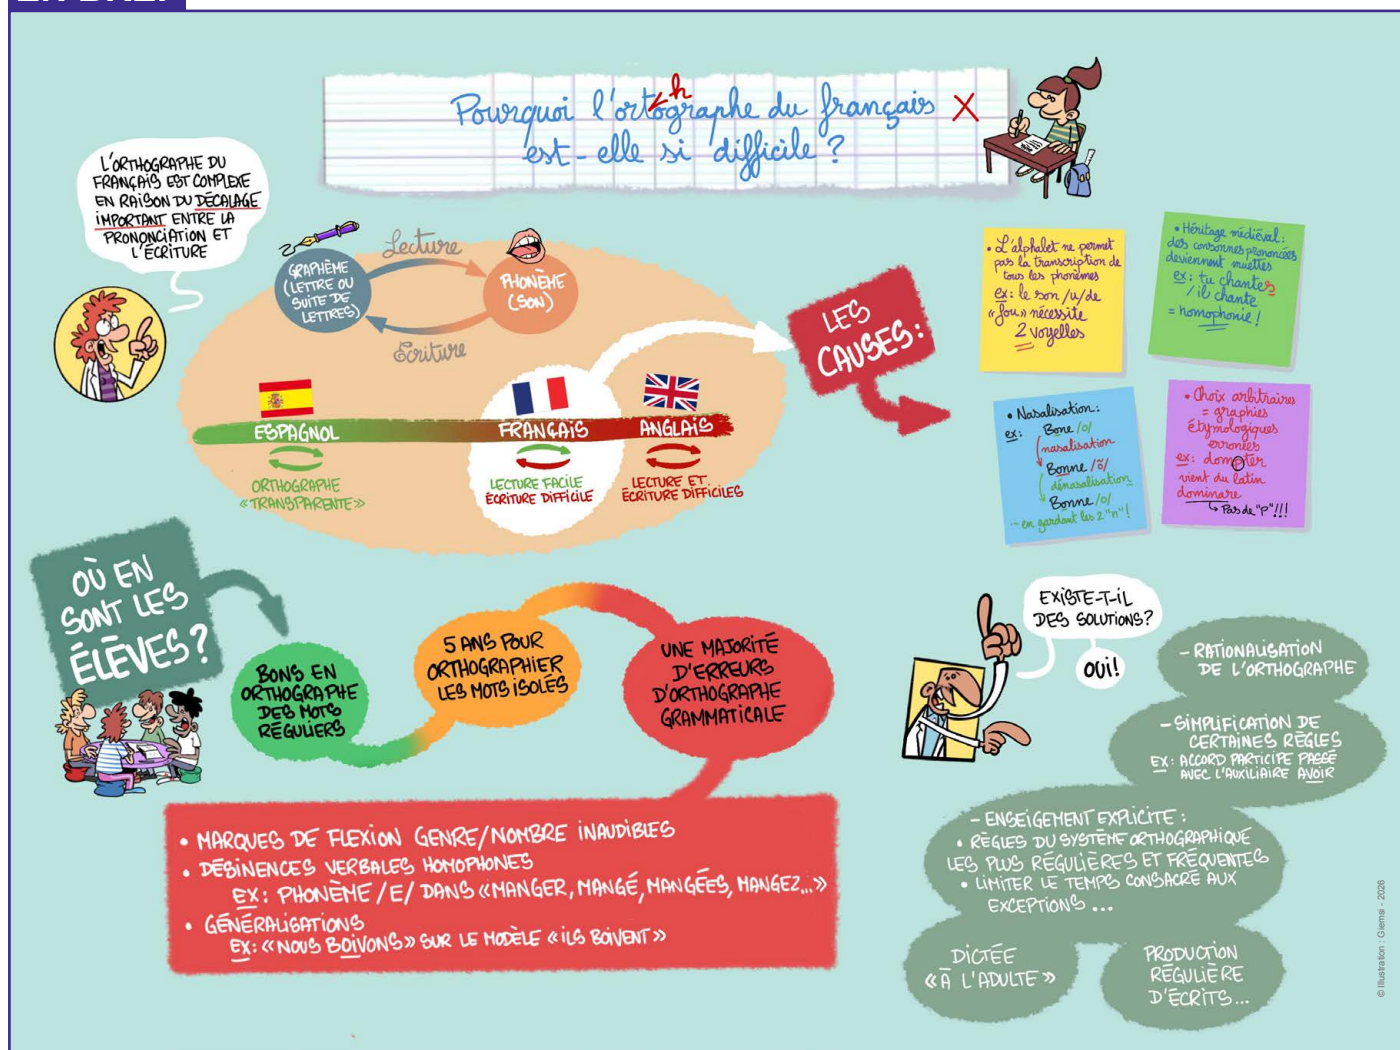 EN BREF
Pourquoi l'ortographe du français
h
X
est-elle si difficile ?
L'ORTHOGRAPHE DU
FRANÇAIS EST COMPLEXE
EN RAISON DU DÉCALAGE
IMPORTANT ENTRE LA
PRONONCIATION ET
L'ÉCRITURE
GRAPHÈME
(LETTRE OU
SUITE DE
LETTRES)
Lecture
PHONÈME
(SON)
Écriture
ESPAGNOL
ORTHOGRAPHE
«TRANSPARENTE»
FRANÇAIS
LECTURE FACILE
ÉCRITURE DIFFICILE
ANGLAIS
LECTURE ET
ÉCRITURE DIFFICILES
LES
CAUSES :
• L'alphabet ne permet
pas la transcription de
tous les phonèmes
ex : le son /u/ de
«fou» nécessite
2 voyelles
• Héritage médiéval :
des consonnes prononcées
deviennent muettes
ex : tu chantes
/ il chante
= homophonie !
• Nasalisation :
ex : Bone /o/
nasalisation
Bonne /õ/
dénasalisation
Bonne /o/
... en gardant les 2 "n" !
• Choix arbitraires
= graphies
étymologiques
erronées
ex : dompter
vient du latin
dominare
Pas de "P" !!!
OÙ EN
SONT LES
ÉLÈVES ?
BONS EN
ORTHOGRAPHE
DES MOTS
RÉGULIERS
5 ANS POUR
ORTHOGRAPHIER
LES MOTS ISOLÉS
UNE MAJORITÉ
D'ERREURS
D'ORTHOGRAPHE
GRAMMATICALE
• MARQUES DE FLEXION GENRE/NOMBRE INAUDIBLES
• DÉSINENCES VERBALES HOMOPHONES
EX : PHONÈME /E/ DANS «MANGER, MANGÉ, MANGÉES, MANGEZ...»
• GÉNÉRALISATIONS
EX : «NOUS BOIVONS» SUR LE MODÈLE «ILS BOIVENT»
EXISTE-T-IL
DES SOLUTIONS ?
OUI !
– RATIONALISATION
DE L'ORTHOGRAPHE
– SIMPLIFICATION DE
CERTAINES RÈGLES
EX : ACCORD PARTICIPE PASSÉ
AVEC L'AUXILIAIRE AVOIR
– ENSEIGEMENT EXPLICITE :
• RÈGLES DU SYSTÈME ORTHOGRAPHIQUE
LES PLUS RÉGULIÈRES ET FRÉQUENTES
• LIMITER LE TEMPS CONSACRÉ AUX
EXCEPTIONS ...
DICTÉE
«À L'ADULTE»
PRODUCTION
RÉGULIÈRE
D'ÉCRITS...
© Illustration : Giemsi - 2026